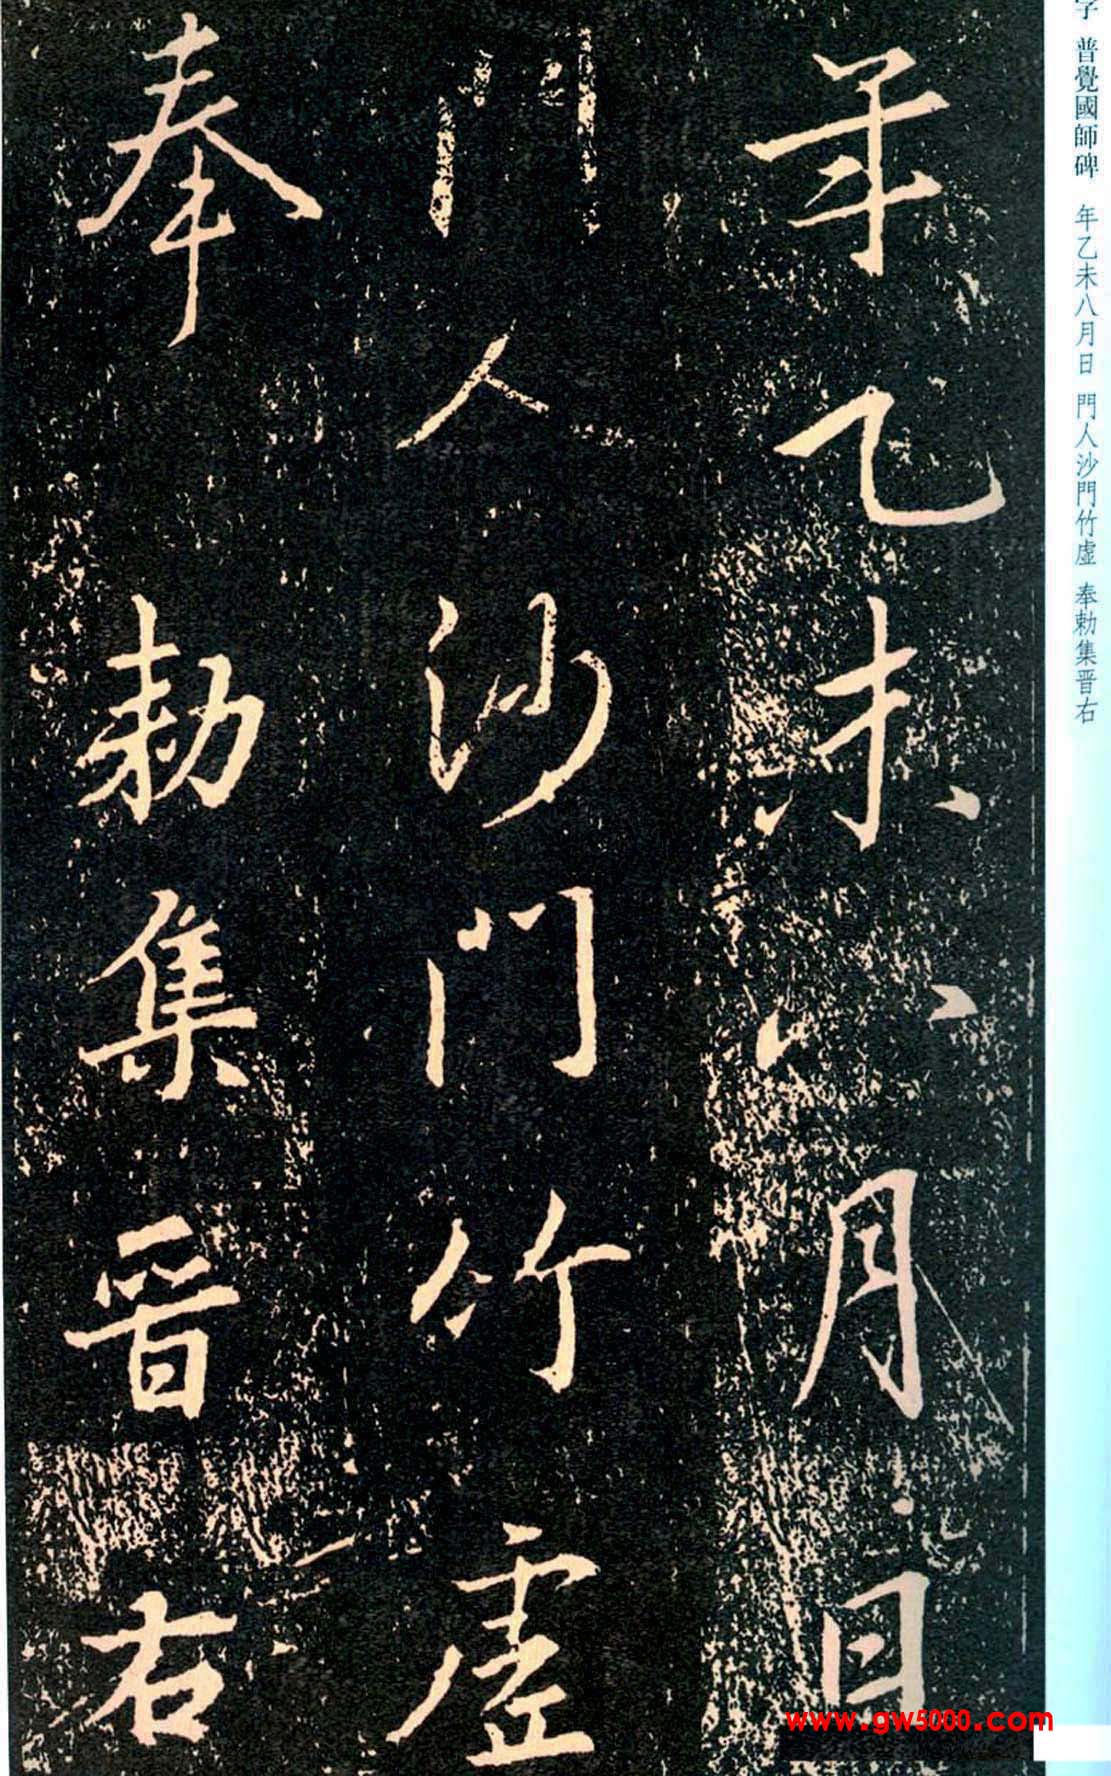 年乙未八月日
門人沙門竹虛
奉勅集晉右
字 普覺國師碑 年乙未八月日 門人沙門竹虛 奉勅集晋右
www.gw5000.com